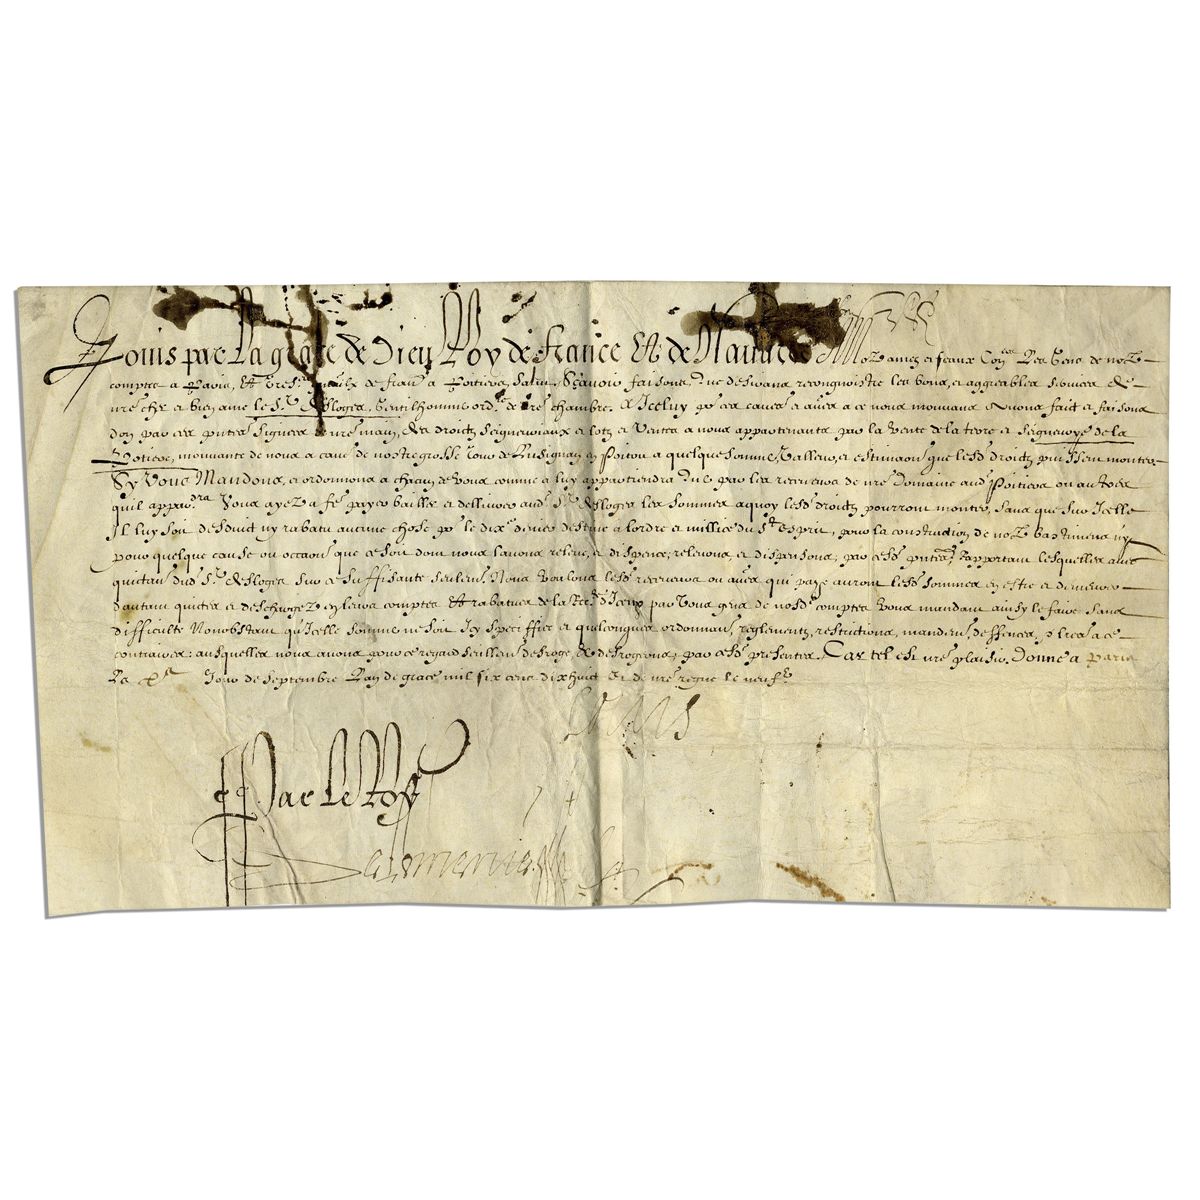 Louis par La grace de Dieu Roy de France Et de Navarre A Noz amez et feaux Con.ers Les Gens de noz
comptes a Paris, Et Tres.rs de France a Poictiers, Salut, Sçavoir faisons, Que desirans recongnoistre les bons, et aggreables services
nre cher et bien amé le Sr. Desloges, Gentilhomme ord.re de nre chambre. A Iceluy po.r ces causes et autres a ce nous mouvans Avons faict et faisons
don par ces pntes signees de nre main, des droictz seigneuriaux et lotz et ventes a nous appartenants par la vente de la terre et seigneurye de la
mouvante de nous a cause de nostre grosse Tour de Lusignan en Poitou a quelque somme, valleur, et estimaon que lesd. droictz puissent monter.
Sy Vous Mandons, et ordonnons a chacun de vous comme a luy appartiendra Que par les receveurs de nre Domaine aud. Poitiers ou autres
quil appar.dra Vous ayez a fe. payer bailler et dellivrer aud. Sr. Desloges les sommes a quoy lesd. droictz pourront monter, sans que sur Icelle
Il luy soit desduit ny rabatu aucune chose po.r le dix.e denier destiné a lordre et millice du St Esprit, pour la construction de noz bastimens ny
pour quelque cause ou occaon que ce soit dont nous lavons relevé, et dispencé, relevons, et dispensons, par cesd. pntes, Rapportant lesquelles avec
quictance dud. Sr. Desloges sur ce suffisante seulem.t Nous voulons lesd. receveurs ou autres qui payé auront lesd. sommes en estre et demeurer
dautant quictes et deschargez en leurs comptes Et rabatues de la Rec.te D'Iceux par vous gens de nosd. comptes vous mandant ainsy le faire sans
difficulté Nonobstant qu'Icelle somme ne soit Icy speciffiee et quelconques ordonnances, reglements, restrictions, mandem.s, deffences, et lres a ce
contraires: ausquelles nous avons pour ce regard seullem.t desrogé, et desrogeons, par cesd. presentes. Car tel est nre plaisir. Donné a Paris
Le Xe Jour de Septembre Lan de grace mil six cens dixhuict Et de nre regne le neuf.e
Louis
Par Le Roy
De Lomenie